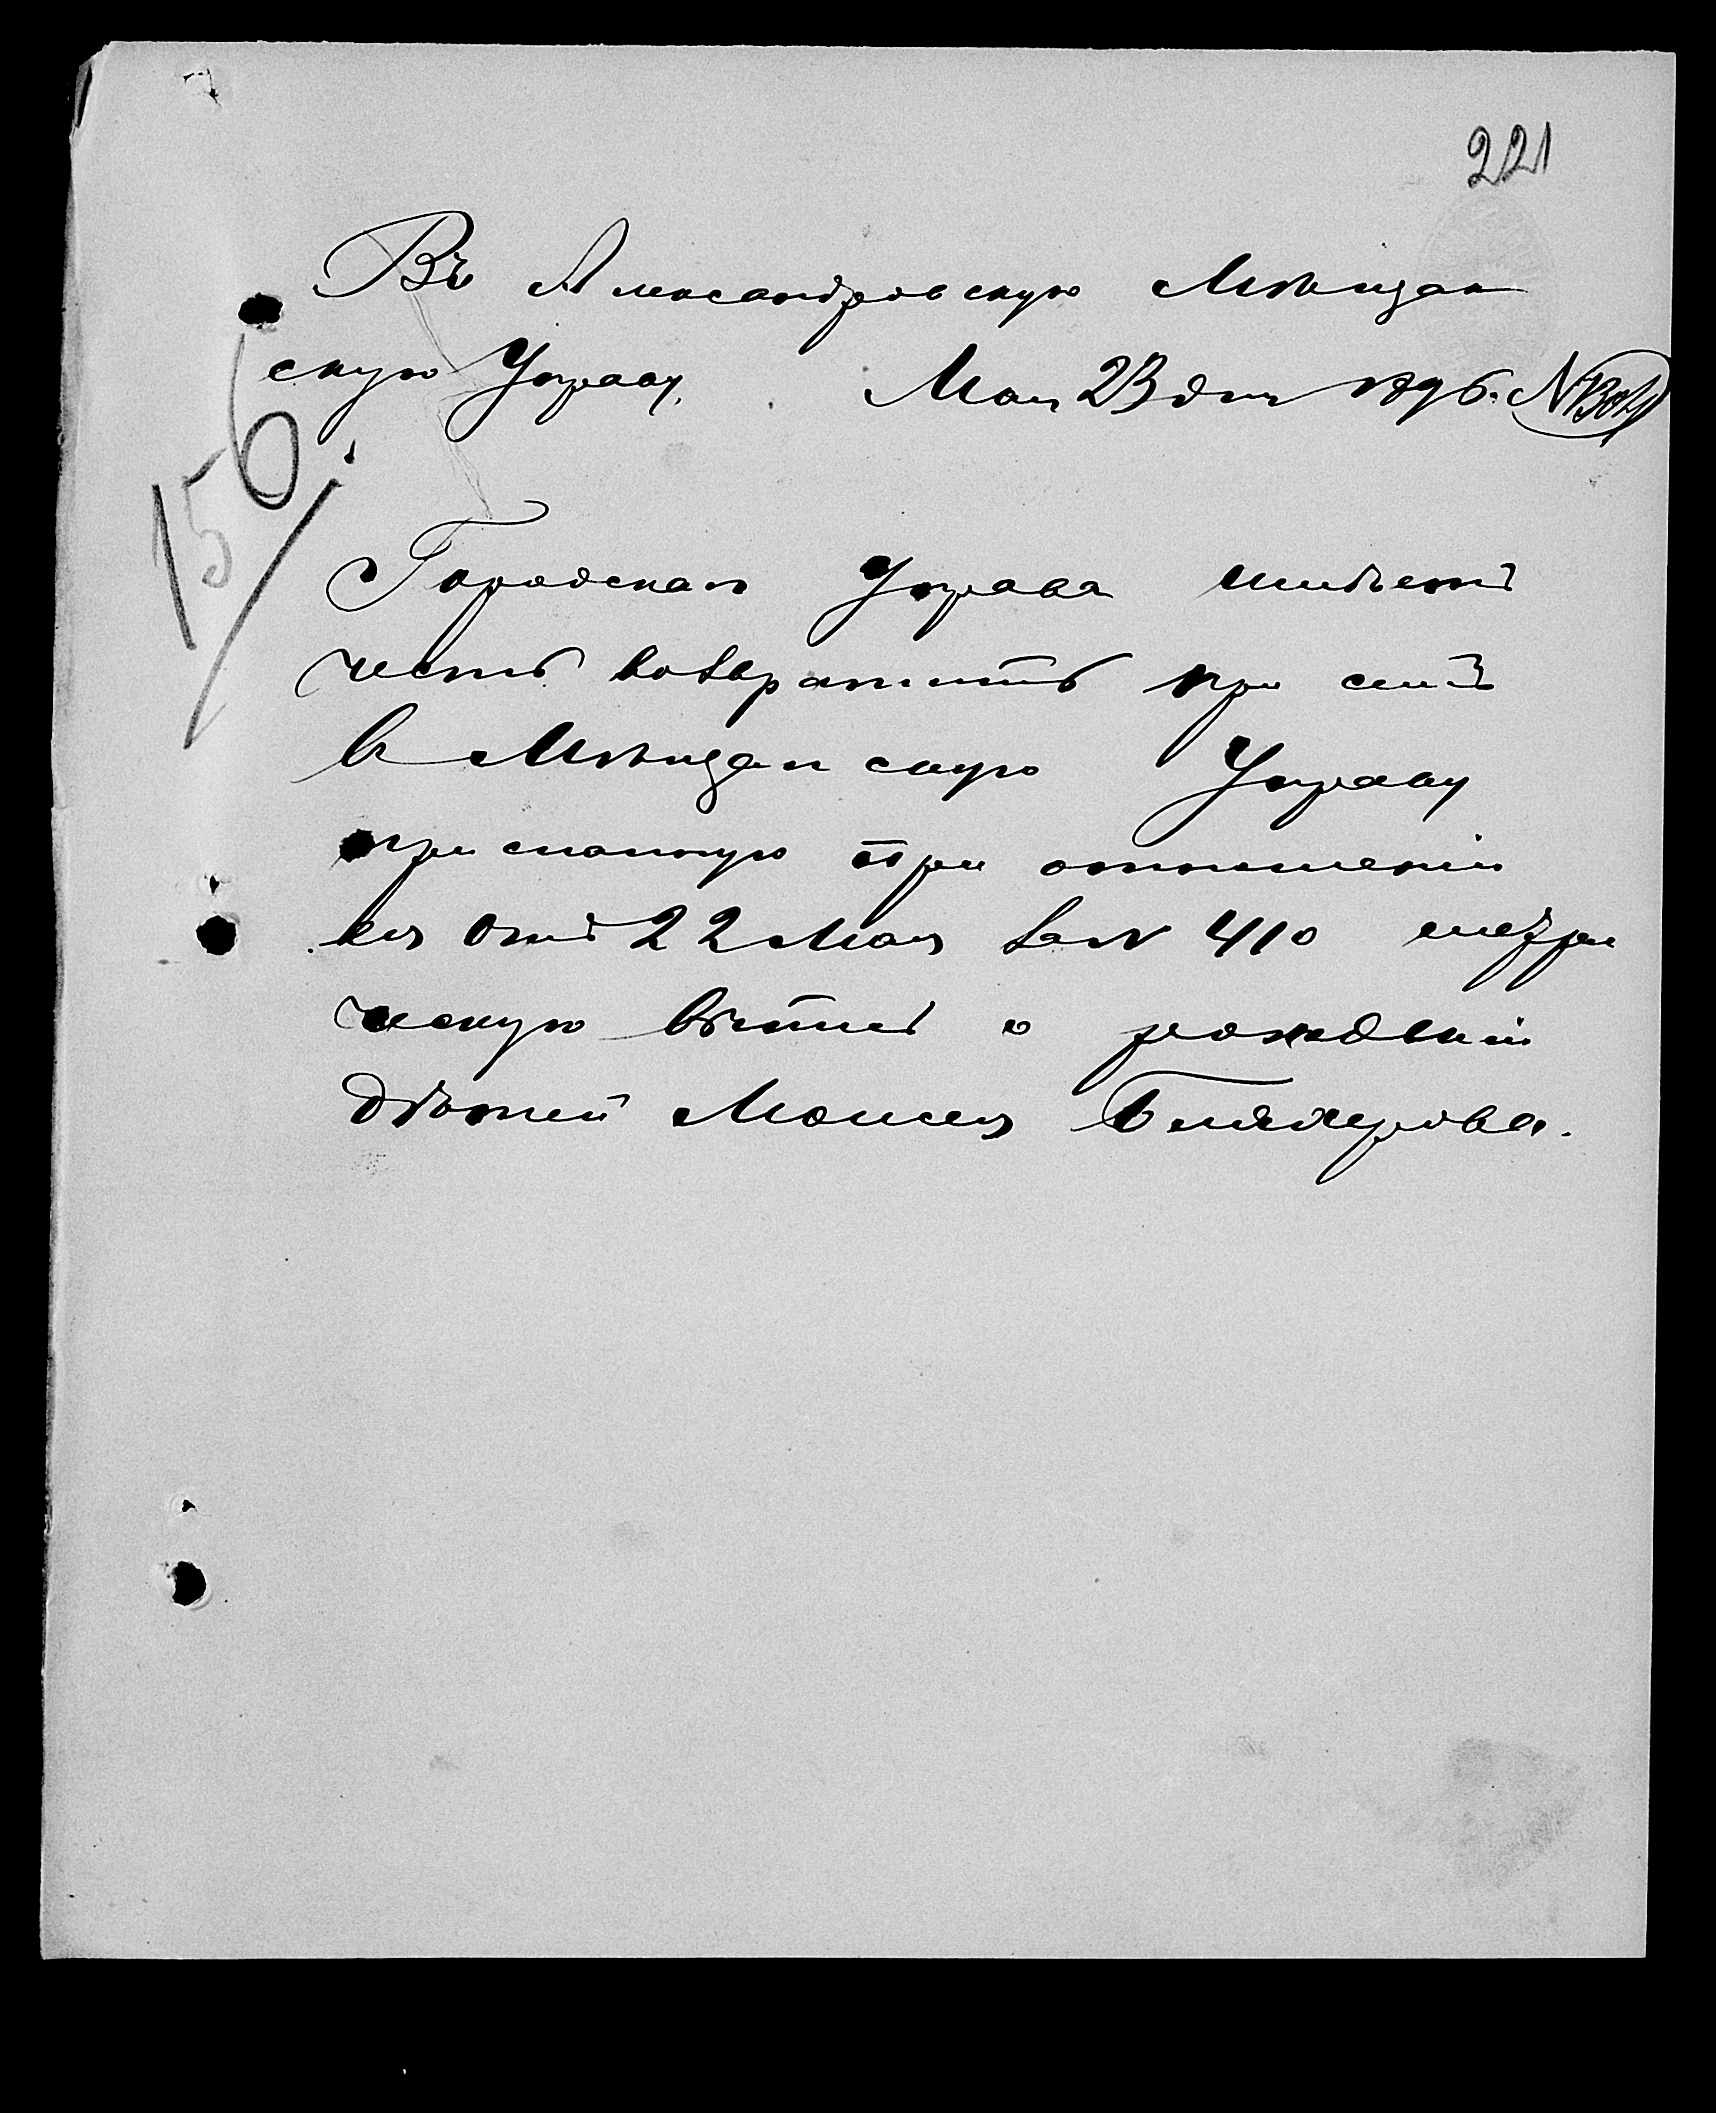 221
Въ Александровскую Мѣщан
скую Управу. Мая 23 дня 1896.
156
Городская Управа имѣетъ
честь возвратить при семъ
в Мѣщанскую Управу
присланную при отношеніи
ея отъ 22 Мая за N 410 метри
ческую выпись о рожденіи
дѣтей Моисея